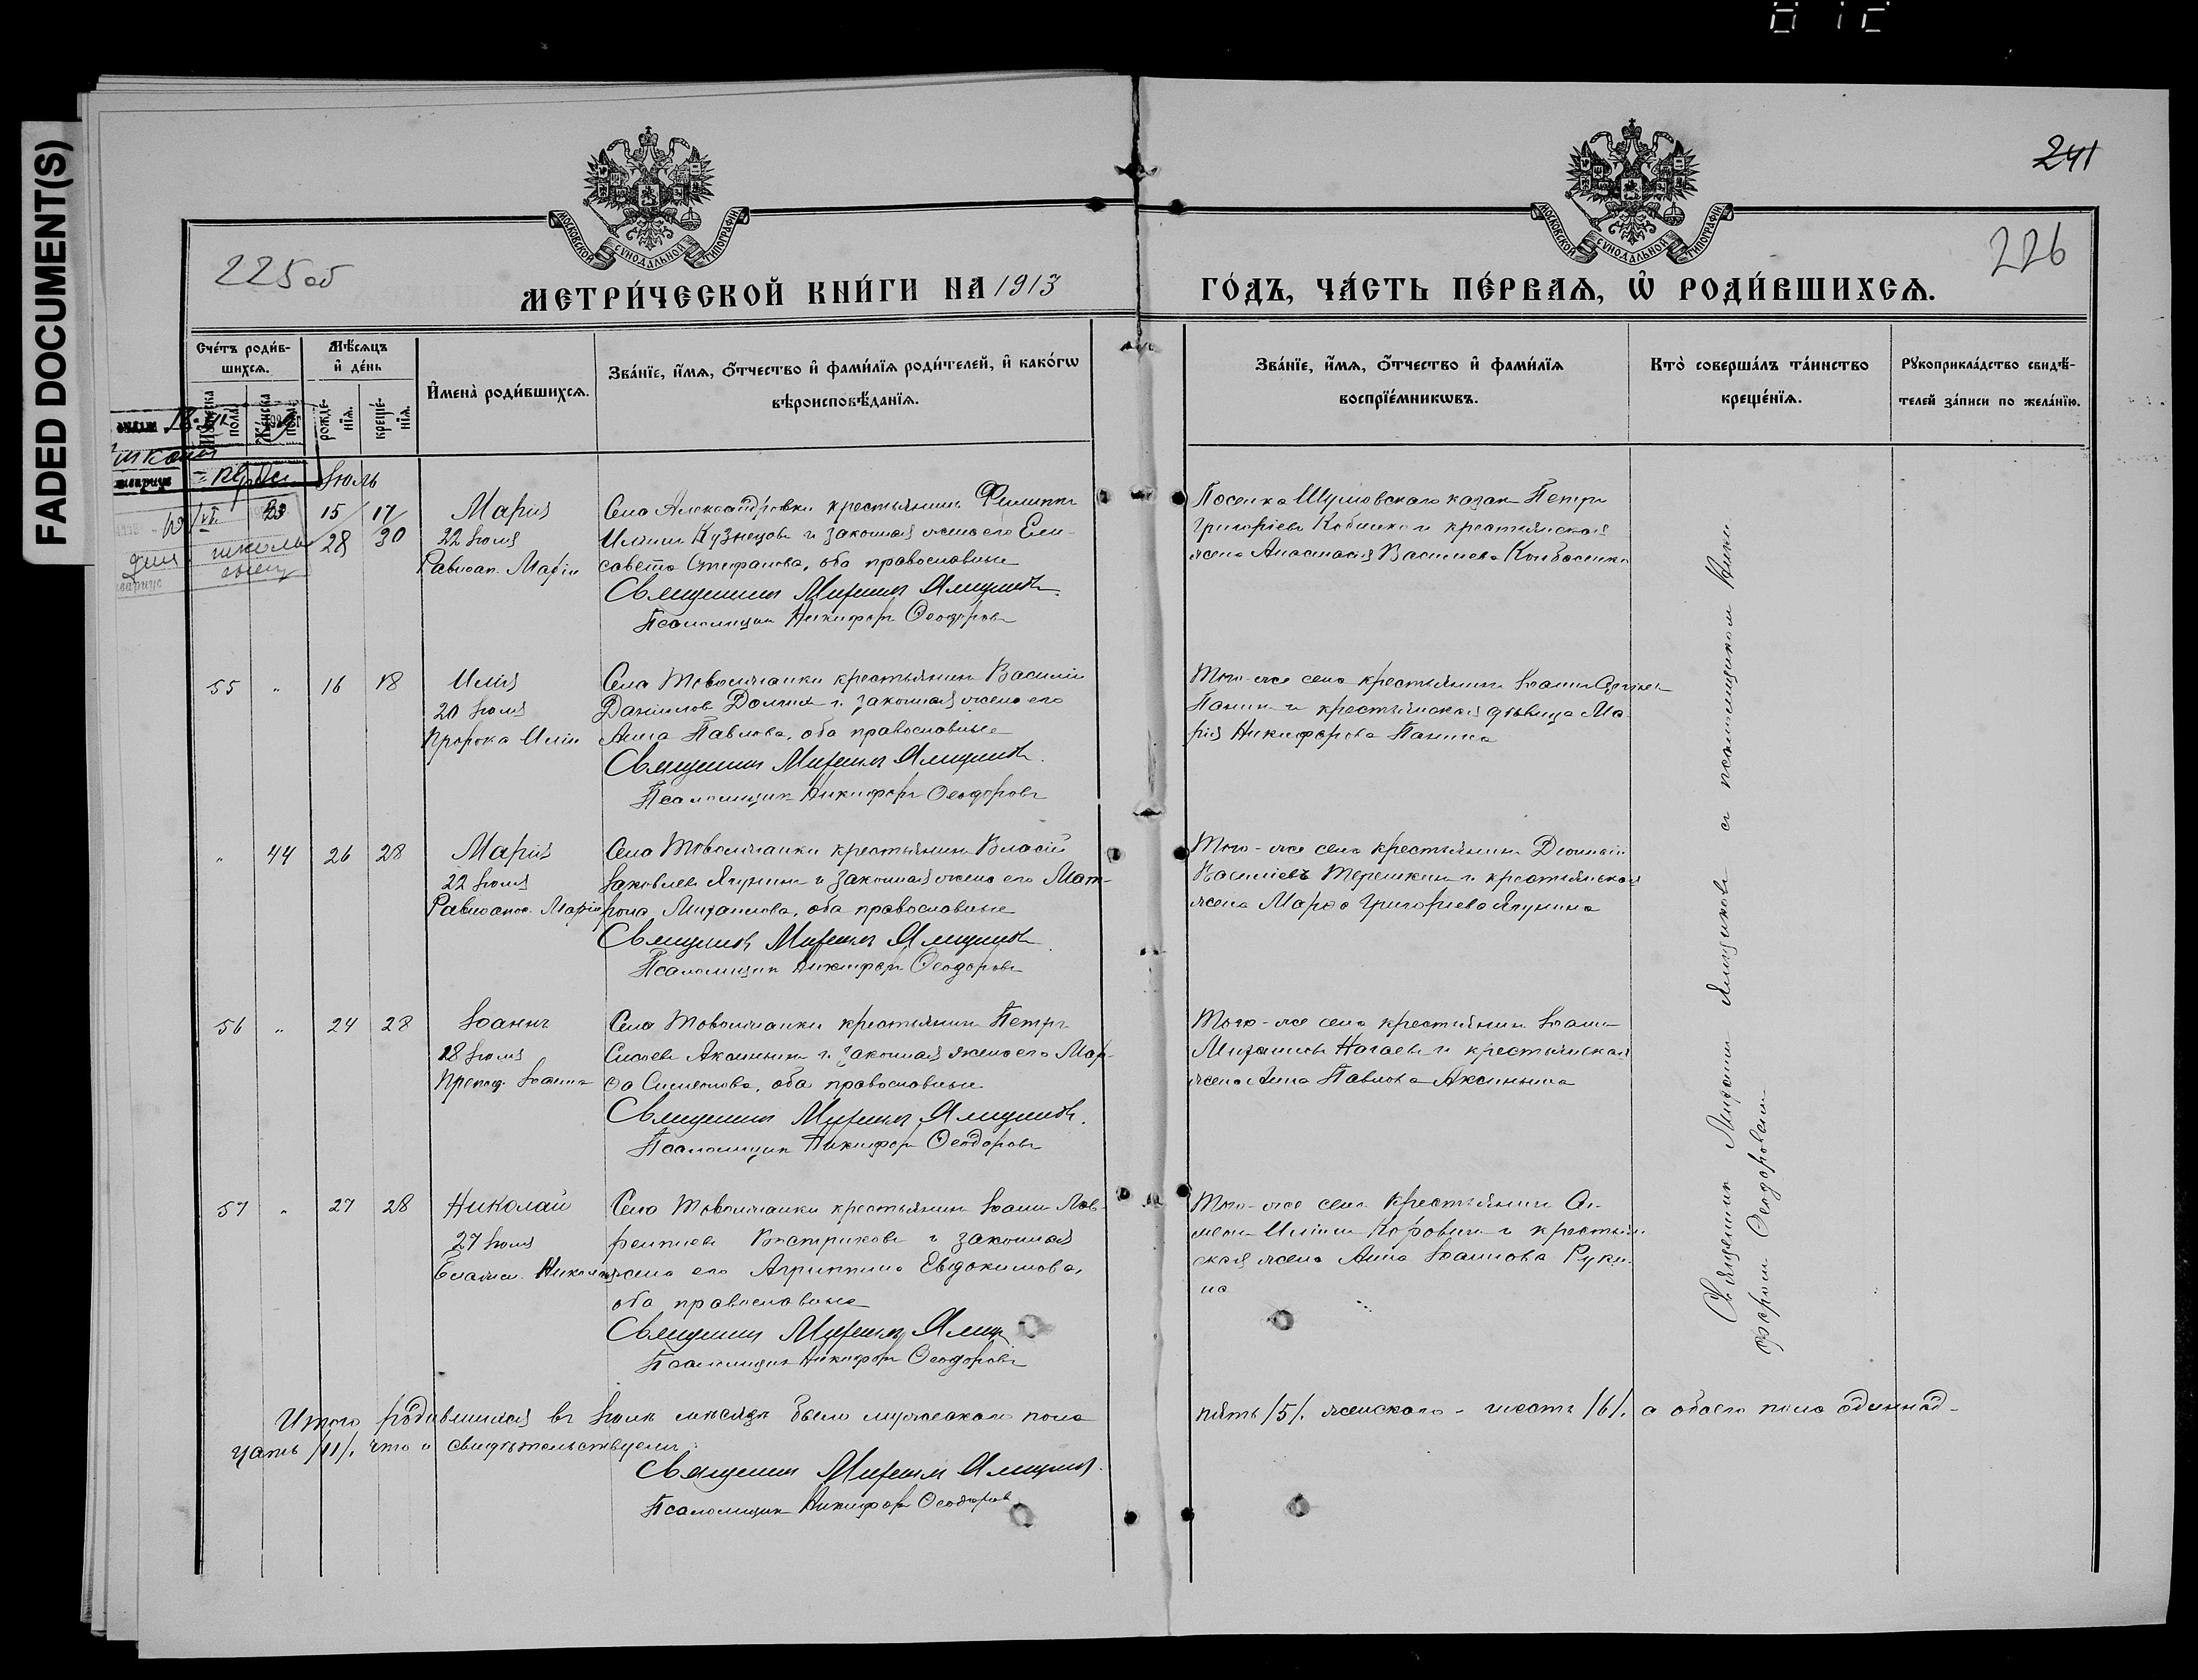 FADED DOCUMENT(S)
241
225 об
226
МОСКОВСКОЙ СѴНОДАЛЬНОЙ ТИПОГРАФІИ
МОСКОВСКОЙ СѴНОДАЛЬНОЙ ТИПОГРАФІИ
МЕТРИ́ЧЕСКОЙ КНИ́ГИ НА 1913
ГО́ДЪ, ЧА́СТЬ ПЕ́РВАЯ, Ѡ РОДИ́ВШИХСЯ.
Сче́тъ роди́в-
шихся.
Му́жеска пола.
Же́нска пола.
Мѣ́сяцъ
и де́нь
рожде́-
нія.
креще́-
нія.
Имена̀ роди́вшихся.
Зва́нїе, и́мя, о́тчество и фами́лїя роди́телей, и како́гѡ
вѣроисповѣ́данїя.
Зва́нїе, и́мя, о́тчество и фами́лїя
воспрїе́мникѡвъ.
Кто̀ соверша́лъ та́инство
креще́нїя.
Рꙋкоприкла́дство свидѣ́-
телей за́писи по жела́нїю.
Іюль
15/28 17/30
Марія
22 Іюля
Равноап. Маріи
Села Александровки крестьянинъ Филиппъ
Ильинъ Кузнецовъ и законная жена его Ели-
савета Стефанова, оба православные
Священникъ Михаилъ Ямщиковъ.
Псаломщикъ Никифоръ Ѳеодоровъ
Поселка Шумовскаго казакъ Петръ
Григорьевъ и крестьянская
жена Анастасія Васильева
55 " 16 18
Илія
20 Іюля
Пророка Иліи
Села Товолжанки крестьянинъ Василій
Даніиловъ и законная жена его
Анна Павлова, оба православные
Священникъ Михаилъ Ямщиковъ.
Псаломщикъ Никифоръ Ѳеодоровъ
Того-же села крестьянинъ Іоаннъ
Панинъ и крестьянская дѣвица Ма-
рія Никифорова Панина
" 44 26 28
Марія
22 Іюля
Равноапос. Маріи
Села Товолжанки крестьянинъ Власій
Іаковлевъ Япрынинъ и законная жена его Мат-
рона Михаилова, оба православные
Священникъ Михаилъ Ямщиковъ
Псаломщикъ Никифоръ Ѳеодоровъ
Того-же села крестьянинъ Діонисій
Васильевъ Терешкинъ и крестьянская
жена Марѳа Григорьева
56 " 24 28
Іоаннъ
18 Іюля
Препод. Іоанна
Села Товолжанки крестьянинъ Петръ
Сысоевъ Аксиньинъ и законная жена его Мар-
ѳа Симеонова, оба православные
Священникъ Михаилъ Ямщиковъ.
Псаломщикъ Никифоръ Ѳеодоровъ
Того-же села крестьянинъ Іоаннъ
Михаиловъ Нагаевъ и крестьянская
жена Анна Павлова Аксиньина
57 " 27 28
Николай
27 Іюля
Блажен. Николая
Села Товолжанки крестьянинъ Іоаннъ Лав-
рентьевъ Вострикова и законная
жена его Агриппина Евдокимова,
оба православные
Священникъ Михаилъ Ямщ
Псаломщикъ Никифоръ Ѳеодоровъ
Того-же села крестьянинъ Си-
меонъ Ильинъ Коровинъ и крестьян-
ская жена Анна Іоаннова Руки-
на
Священникъ Михаилъ Ямщиковъ съ псаломщикомъ Ники-
форомъ Ѳеодоровымъ
Итого родившихся въ Іюлѣ мѣсяцѣ было мужескаго пола пять /5/. женскаго - шесть /6/. а обоего пола одиннад-
цать /11/. что и свидѣтельствуемъ:
Священникъ Михаилъ Ямщиковъ.
Псаломщикъ Никифоръ Ѳеодоровъ